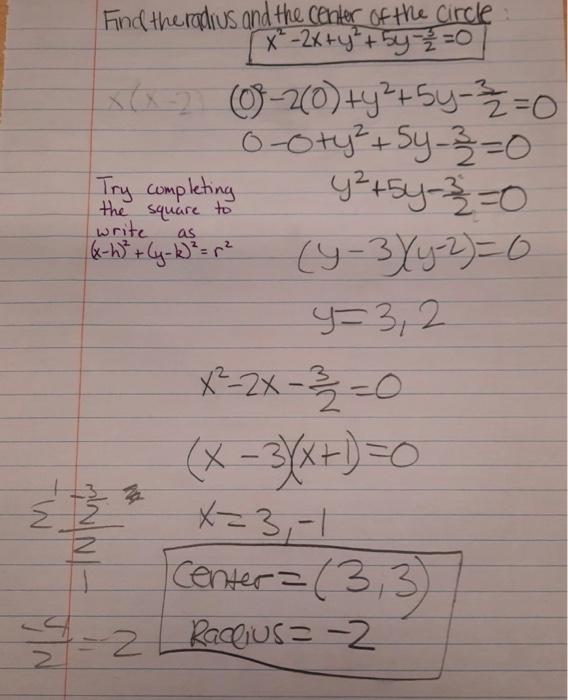 Find the radius and the center of the circle:
x² - 2x + y² + 5y - 3/2 = 0
x(x-2)
(0)² - 2(0) + y² + 5y - 3/2 = 0
0 - 0 + y² + 5y - 3/2 = 0
y² + 5y - 3/2 = 0
Try completing
the square to
write as
(x-h)² + (y-k)² = r²
(y-3)(y-2) = 0
y = 3, 2
x² - 2x - 3/2 = 0
(x-3)(x+1) = 0
x = 3, -1
Center = (3,3)
Radius = -2
-4/2 = -2